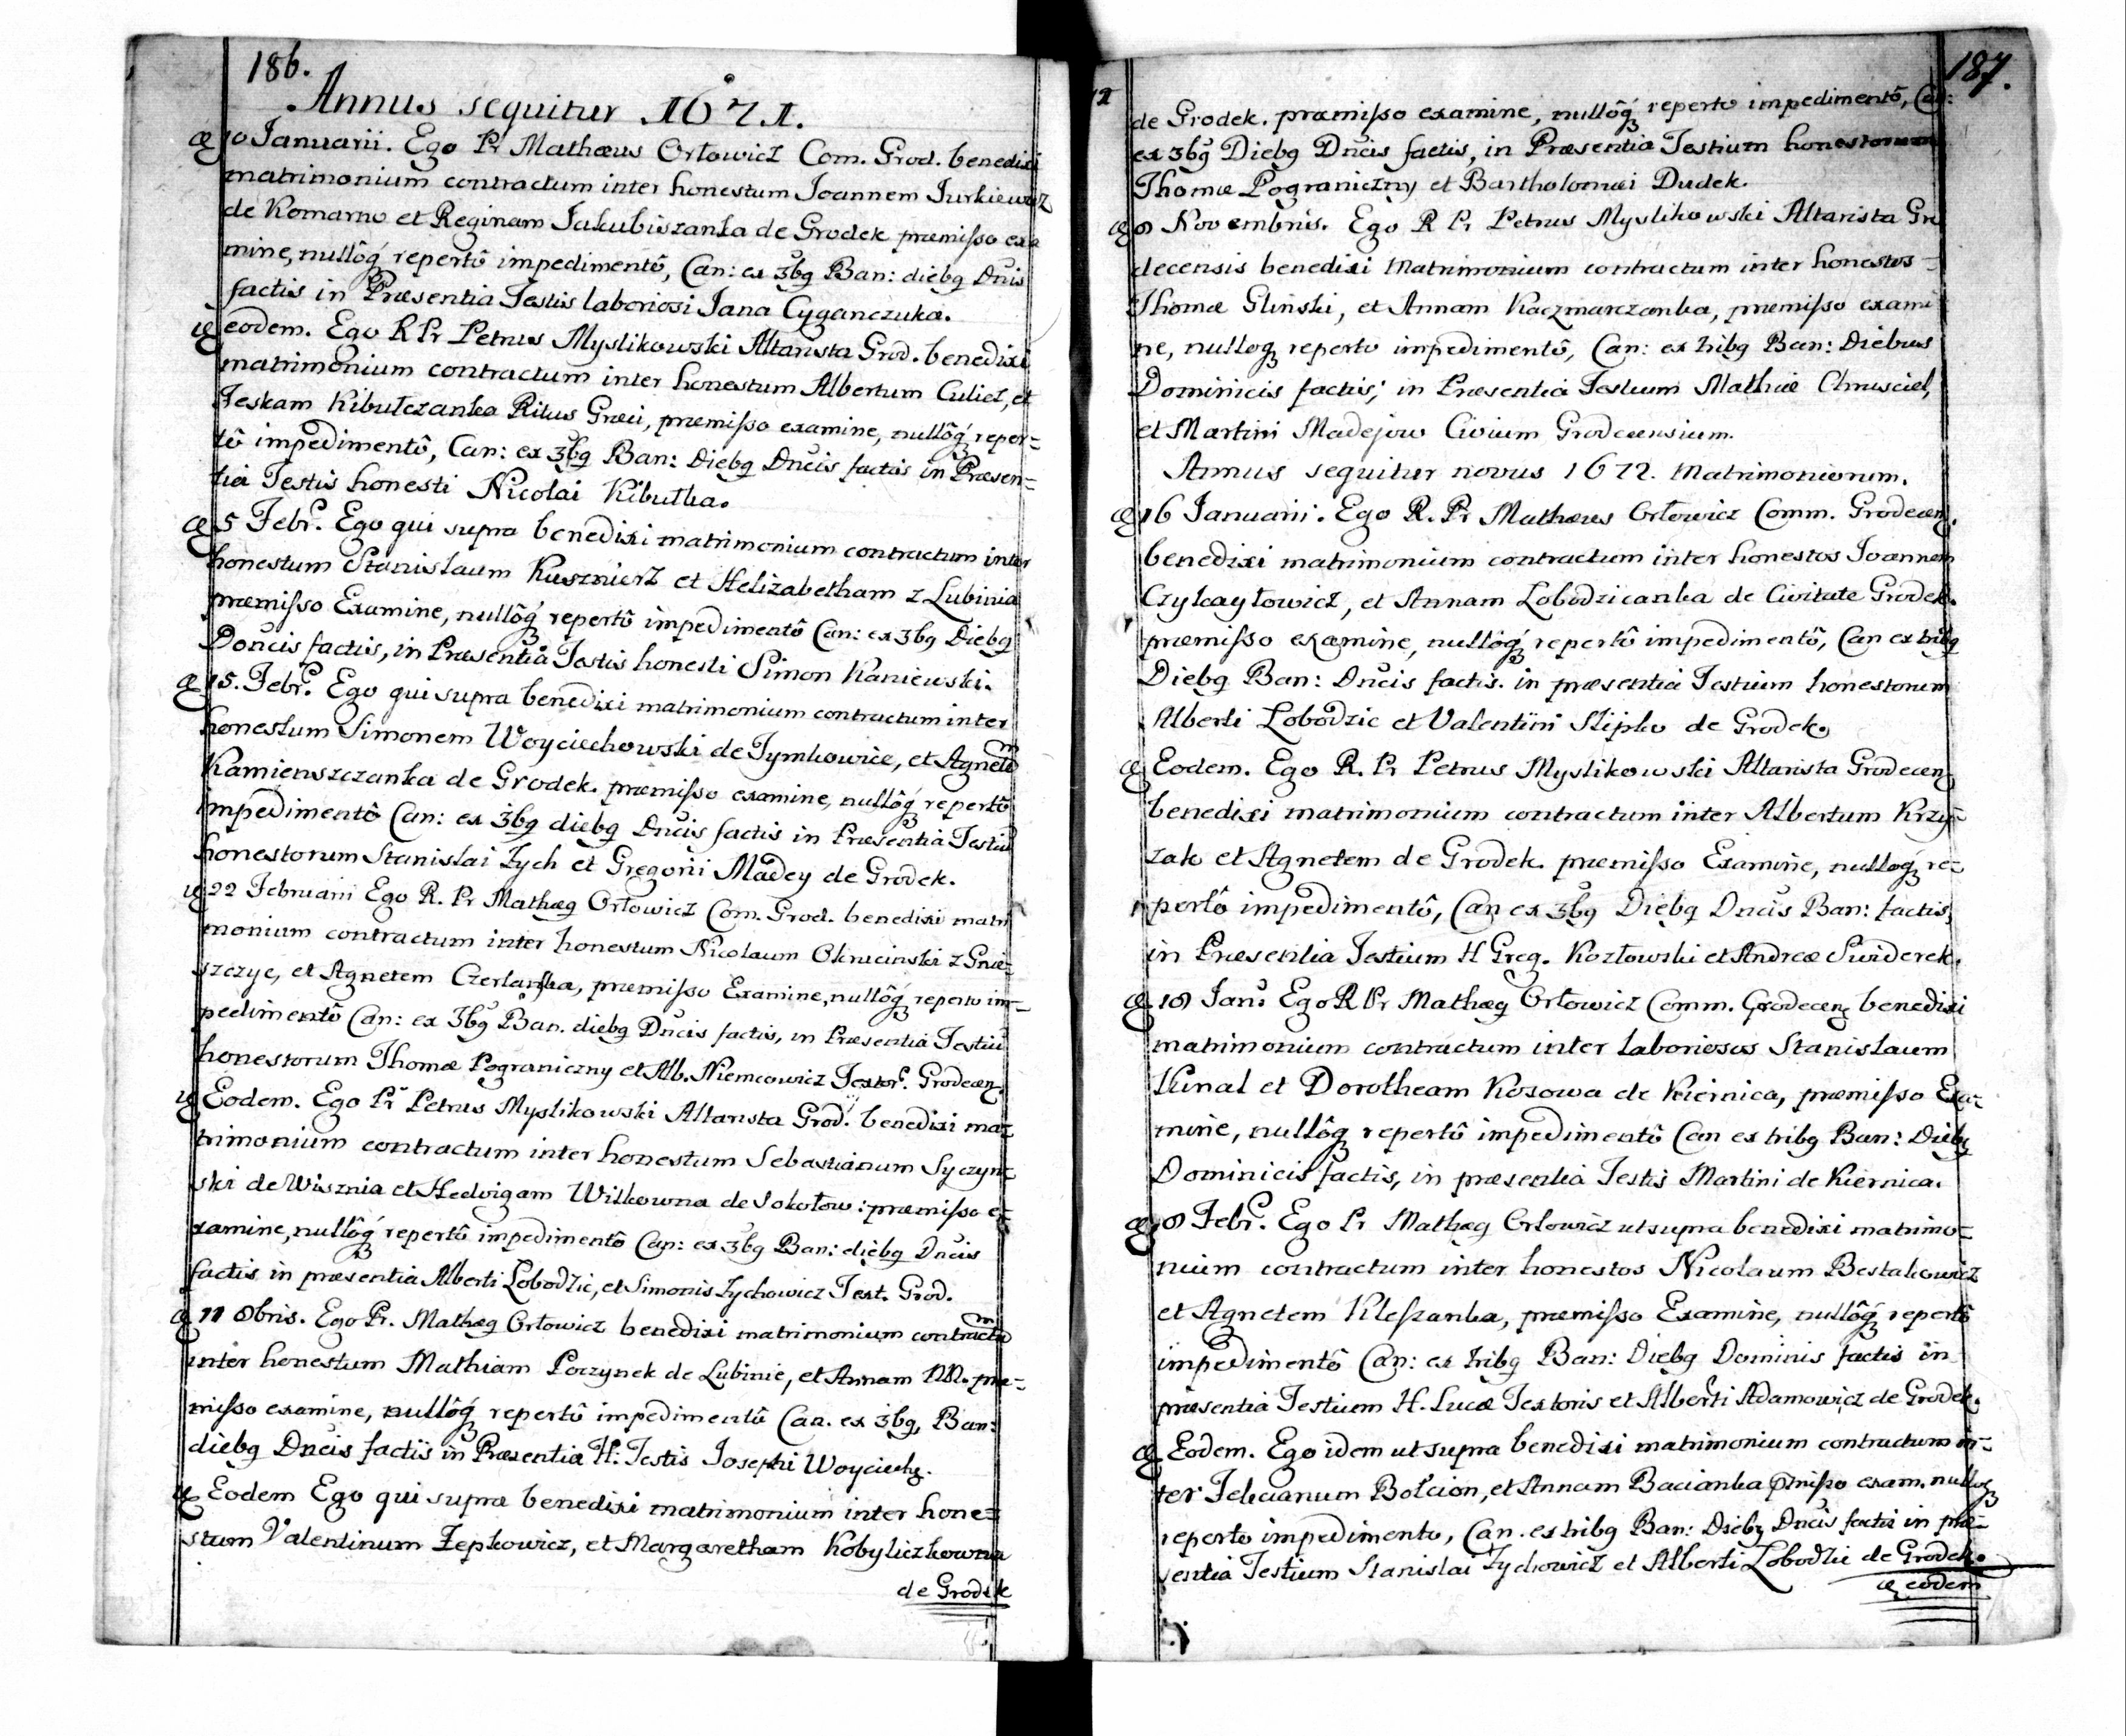 186.
Annus sequitur 1671.
10 Januarii. Ego Pr Mathæus Orłowicz Com. Grod. benedixi
matrimonium contractum inter honestum Joannem Jurkiewicz
de Komarno et Reginam Jakubiszanka de Grodek præmisso exa
mine, nullôq́ʒ repertô impedimentô, Can: ex 3bq Ban: diebq Dnis
factis in Præsentia Testis laboriosi Jana Cyganczuka.
eodem. Ego R Pr Petrus Myslikowski Altarista Grod. benedixi
matrimonium contractum inter honestum Albertum Culicz, et
Teskam Kibułczanka Ritus Græci, præmisso examine, nullôq́ʒ reper=
tô impedimentô, Can: ex 3bq Ban: Diebq Dnĉis factis in Præsen=
tia Testis honesti Nicolai Kibułka.
5 Febr. Ego qui supra benedixi matrimonium contractum inter
honestum Stanislaum Kusznierz et Helizabetham z Lubinia
præmisso Examine, nullôq́ʒ repertô impedimentô Can: ex 3bq Diebq
Doncis factis, in Præsentia Testis honesti Simon Kaniewski.
15. Febr. Ego qui supra benedixi matrimonium contractum inter
honestum Simonem Woyciechowski de Tymkowice, et Agnetē
Kamienszczanka de Grodek. præmisso examine, nullôq́ʒ repertô
impedimentô Can: ex 3bq diebq Dnĉis factis in Præsentia Testiū
honestorum Stanislai Zych et Gregorii Madey de Grodek.
22 Februarii Ego R. Pr Mathæq Orłowicz Com. Grod. benedixi matri
monium contractum inter honestum Nicolaum Okrucinski z Gnie=
szczyc, et Agnetem Czerlanska, præmisso Examine, nullôq́ʒ reperto im=
pedimentô Can: ex 3bq Ban. diebq Dnĉis factis, in Præsentia Testiū
honestorum Thomæ Pograniczny et Alb. Niemcowicz Textor. Grodecen.
Eodem. Ego Pr Petrus Myslikowski Altarista Grod. benedixi ma=
trimonium contractum inter honestum Sebastianum Syczyn=
ski de Wisznia et Hedvigam Wilkowna de Sokołow: præmisso e=
xamine, nullôq́ʒ repertô impedimentô Can: ex 3bq Ban: diebq Dnĉis
factis in præsentia Alberti Lobodzic, et Simonis Zychowicz Text. Grod.
11 8bris. Ego Pr. Mathæq Orłowicz benedixi matrimonium contractū
inter honestum Mathiam Poczynek de Lubinie, et Annam NN. præ=
misso examine, nullôq́ʒ repertô impedimentô Can. ex 3bq, Ban:
diebq Dnĉis factis in Præsentia H: Testis Josephi Woyciech.
Eodem Ego qui supra benedixi matrimonium inter hone=
stum Valentinum Zepkowicz, et Margaretham Kobyliczkowna
de Grodek
187.
de Grodek. præmisso examine, nullôq́ʒ reperto impedimentô, Can:
ex 3bq Diebq Dnĉis factis, in Præsentia Testium honestorum
Thomæ Pograniczny et Bartholomæi Dudek.
8 Novembris. Ego R Pr Petrus Myslikowski Altarista Gro
decensis benedixi Matrimonium contractum inter honestos
Thomæ Glinski, et Annam Kaczmarczanka, præmisso exami
ne, nulloqʒ reperto impedimentô, Can: ex tribq Ban: Diebus
Dominicis factis, in Præsentia Testium Mathiæ Chmsciel,
et Martini Madejow Civium Grodecensium.
Annus sequitur novus 1672. Matrimoniorum.
16 Januarii. Ego R. Pr Mathæus Orłowicz Comm. Grodecen.
benedixi matrimonium contractum inter honestos Joannem
Czykayłowicz, et Annam Lobodzicanka de Civitate Grodek.
præmisso examine, nullôq́ʒ repertô impedimentô, Can ex tribq
Diebq Ban: Dnĉis factis. in præsentia Testium honestorum
Alberti Lobodzic et Valentini Slipko de Grodek.
Eodem. Ego R. Pr Petrus Myslikowski Altarista Grodecen
benedixi matrimonium contractum inter Albertum Krzy=
zak et Agnetem de Grodek. præmisso Examine, nulloq́ʒ re=
pertô impedimentô, Can ex 3bq Diebq Dncis Ban: factis,
in Præsentia Testium H Greg. Kozłowski et Andreæ Swiderek.
18 Jan: Ego R Pr Mathæq Orłowicz Comm. Grodecen benedixi
matrimonium contractum inter laboriosos Stanislaum
Kinal et Dorotheam Kosowa de Kiernica, præmisso Exa=
mine, nullôqʒ repertô impedimentô Can ex tribq Ban: Diebq
Dominicis factis, in præsentia Testis Martini de Kiernica.
8 Febr. Ego Pr Mathæq Orłowicz ut supra benedixi matrimo=
nium contractum inter honestos Nicolaum Bestakowicz
et Agnetem Kleszanka, præmisso Examine, nullôq́ʒ repertô
impedimentô Can: ex tribq Ban: Diebq Dominis factis in
præsentia Testium H. Lucæ Textoris et Alberti Adamowicz de Grodek.
Eodem. Ego idem ut supra benedixi matrimonium contractum in=
ter Felicianum Bołcion, et Annam Bacianka pmisso exam. nulloqʒ
reperto impedimento, Can. ex tribq Ban: Diebq Dncis factis in præ=
sentia Testium Stanislai Zychowicz et Alberti Lobodzic de Grodek.
eodem